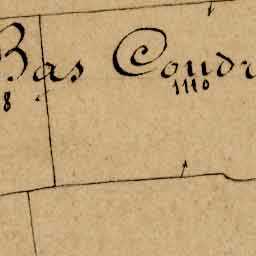 Bas Coudr
8
1110